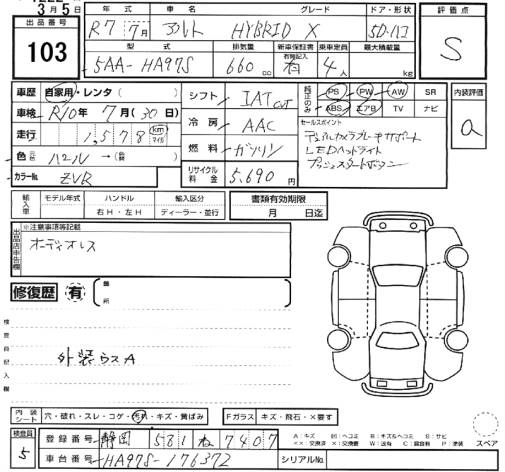 3月5日
出品番号
103
年式 車名 グレード ドア・形状
R7 7月 アルト HYBRID X 5D・ハコ
型式 排気量 新車保証書 乗車定員 最大積載量
有無記入
5AA-HA97S 660cc 有 4人 kg
評価点
S
車歴 自家用・レンタ( )
車検 R10年7月(30日)
走行 1,578 km マイル
色 元色 パール→(替 )
カラーNo. ZVR
シフト IAT CVT
冷房 AAC
燃料 ガソリン
リサイクル料金 5,690円
純正のみ
PS PW AW SR
ABS エアB TV ナビ
セールスポイント
デュアルカメラブレーキサポート
LEDヘッドライト
プッシュスタートボタン
内装評価
a
輸入車 モデル年式 ハンドル 輸入区分
右H・左H ディーラー・並行
書類有効期限
月 日迄
出品店申告欄
※注意事項等記載
オーディオレス
修復歴 有 箇所
検査員記入欄
外装ウスA
内装シート 穴・破れ・スレ・コゲ・汚れ・キズ・黄ばみ
Fガラス キズ・飛石・×要す
検査員
5
登録番号 静岡 581 ね 7407
車台番号 HA97S-176372
シリアルNo.
A:キズ E:ヘコミ B:キズ&ヘコミ S:サビ
××:交換済 X:交換要 W:波有 C:腐食有 P:塗装
スペア